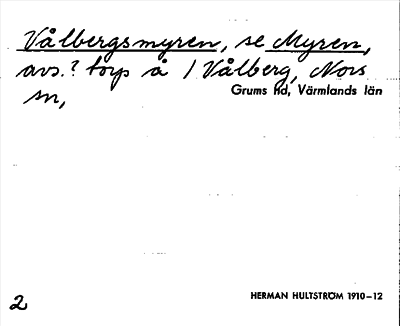 Vålbergsmyren, se Myren,
avs.? torp å 1 Vålberg, Nors
sn,
Grums hd, Värmlands län
2
HERMAN HULTSTRÖM 1910–12